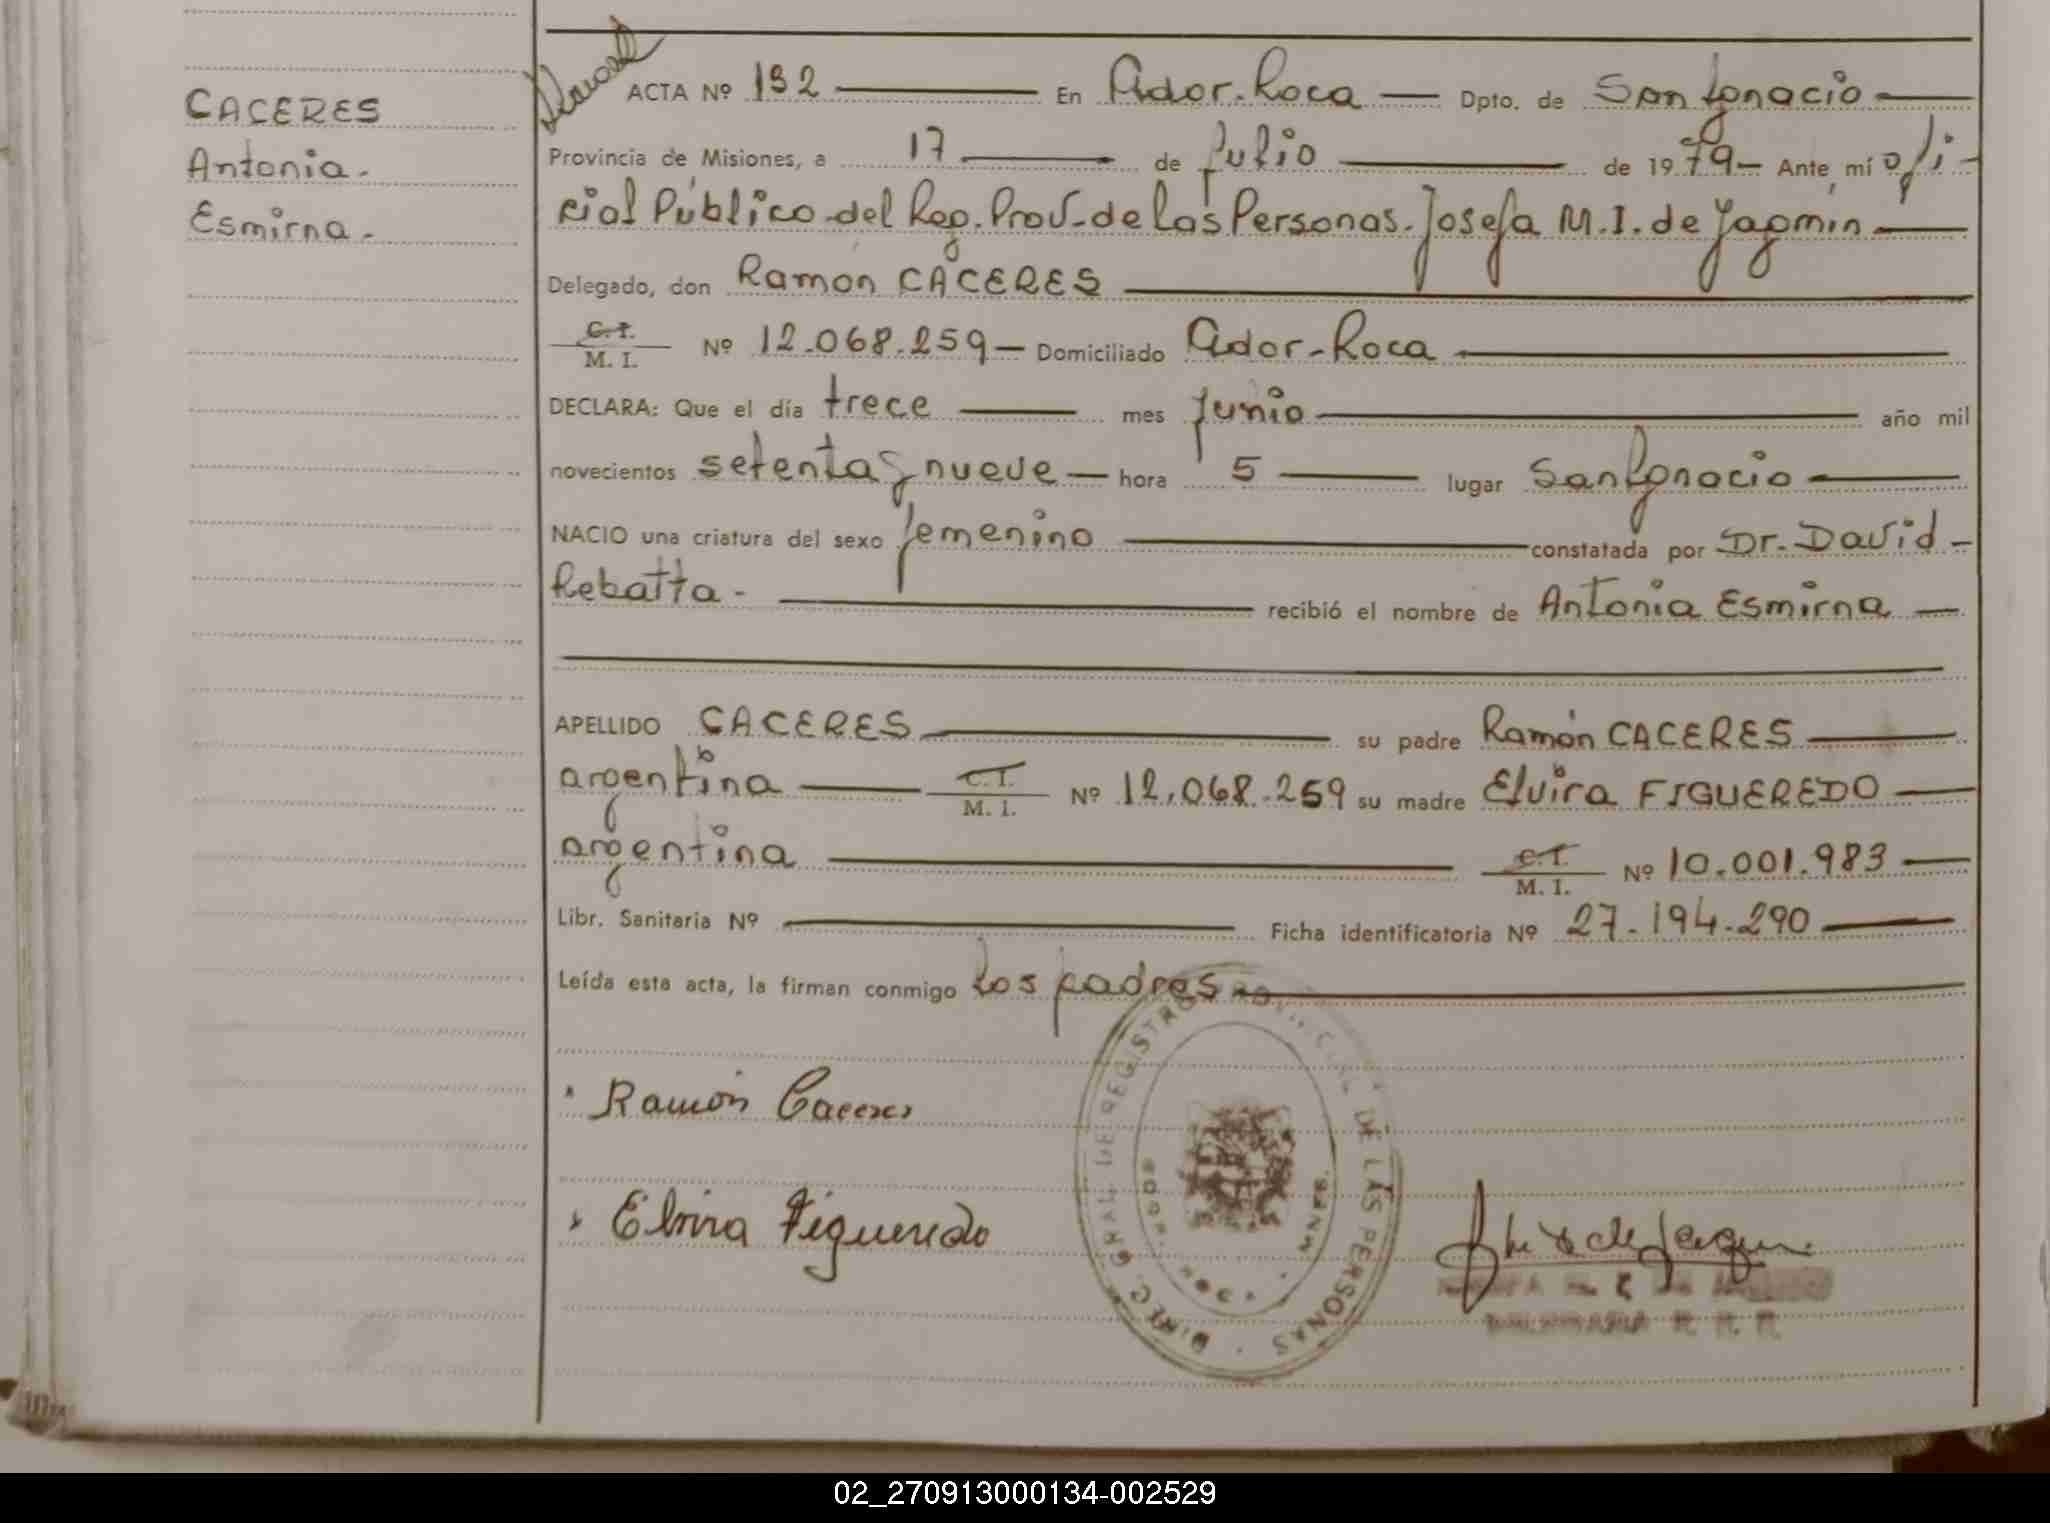 CACERES
Antonia.
Esmirna.
ACTA Nº 192 En Ador. Roca Dpto. de San Ignacio
Provincia de Misiones, a 17 de Julio de 1979 Ante mí ofi-
cial Público del Reg. Prov. de las Personas. Josefa M. I. de Yagmin
Delegado, don Ramón CACERES
C. I.
M. I. Nº 12.068.259 Domiciliado Ador-Roca
DECLARA: Que el día trece mes junio año mil
novecientos setenta y nueve hora 5 lugar San Ignacio
NACIO una criatura del sexo femenino constatada por Dr. David
Rebatta recibió el nombre de Antonia Esmirna
APELLIDO CACERES su padre Ramón CACERES
argentina C. I.
M. I. Nº 12.068.259 su madre Elvira FIGUEREDO
argentina C. I.
M. I. Nº 10.001.983
Libr. Sanitaria Nº Ficha identificatoria Nº 27.194.290
Leída esta acta, la firman conmigo los padres
Ramón Caceres
Elvira Figueredo
DIREC. GRAL. DE REGISTRO PROVINCIAL DE LAS PERSONAS
02_270913000134-002529